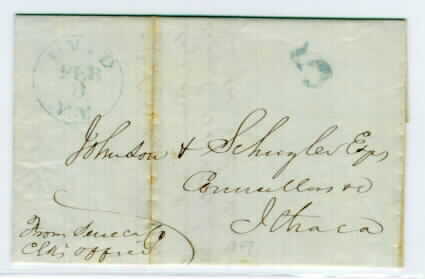 FEB
N.Y.
5
Johnson & Schuyler Esqs
Councillors &c
Ithaca
From Seneca
Clks Office